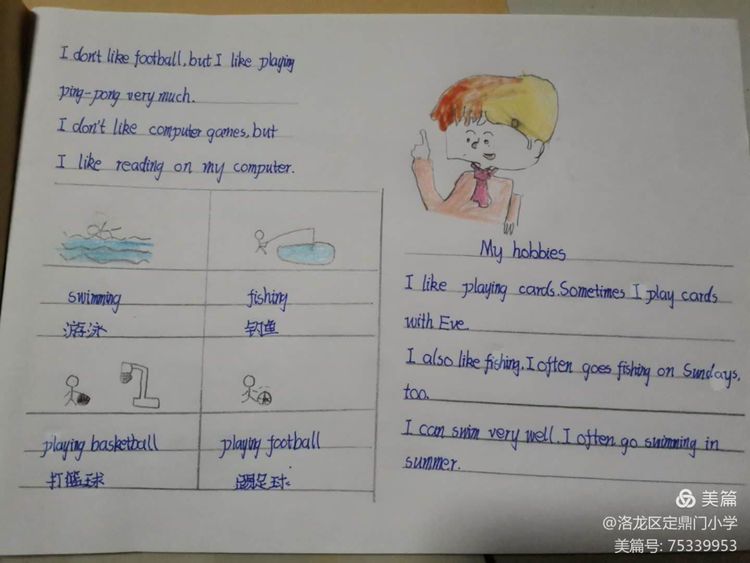 I don't like football, but I like playing
ping-pong very much.
I don't like computer games, but
I like reading on my computer.
swimming
fishing
游泳
钓鱼
playing basketball
playing football
打篮球
踢足球
My hobbies
I like playing cards. Sometimes I play cards
with Eve.
I also like fishing. I often goes fishing on Sundays,
too.
I can swim very well. I often go swimming in
summer.
美篇
@洛龙区定鼎门小学
美篇号: 75339953